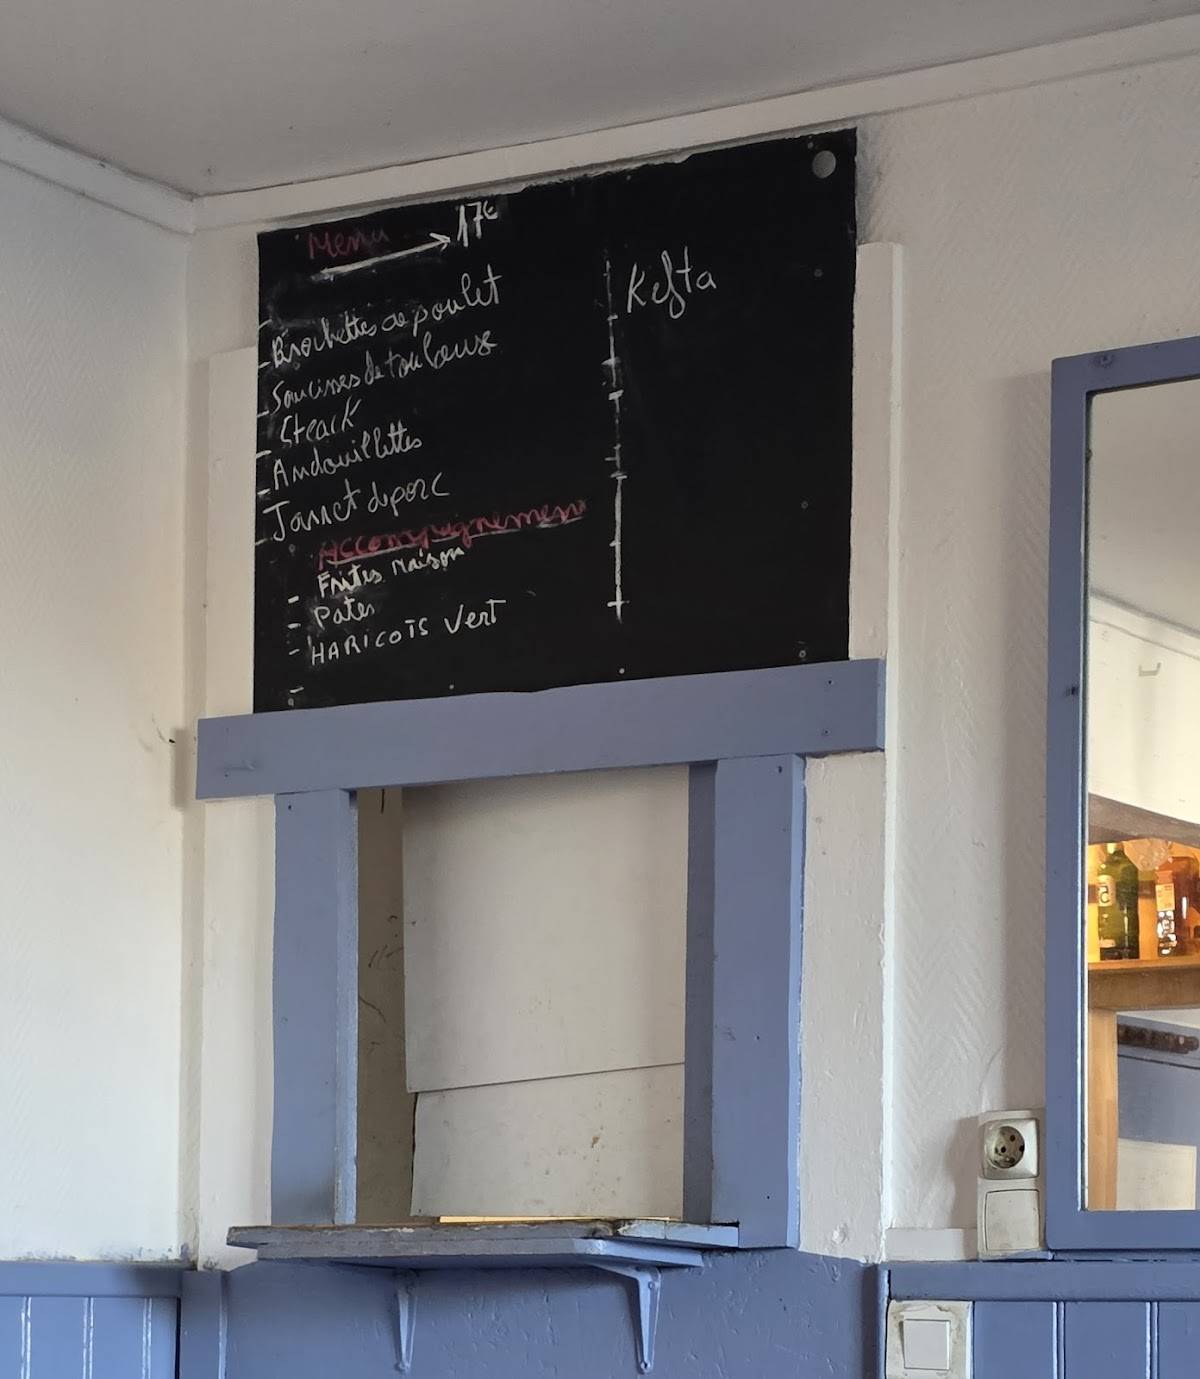 Menu 17€
Brochettes de poulet
Saucisses de toulouse
Steack
Andouillettes
Jarret de porc
Accompagnement
Frites Maison
Pates
HARICOTS Vert
Kefta